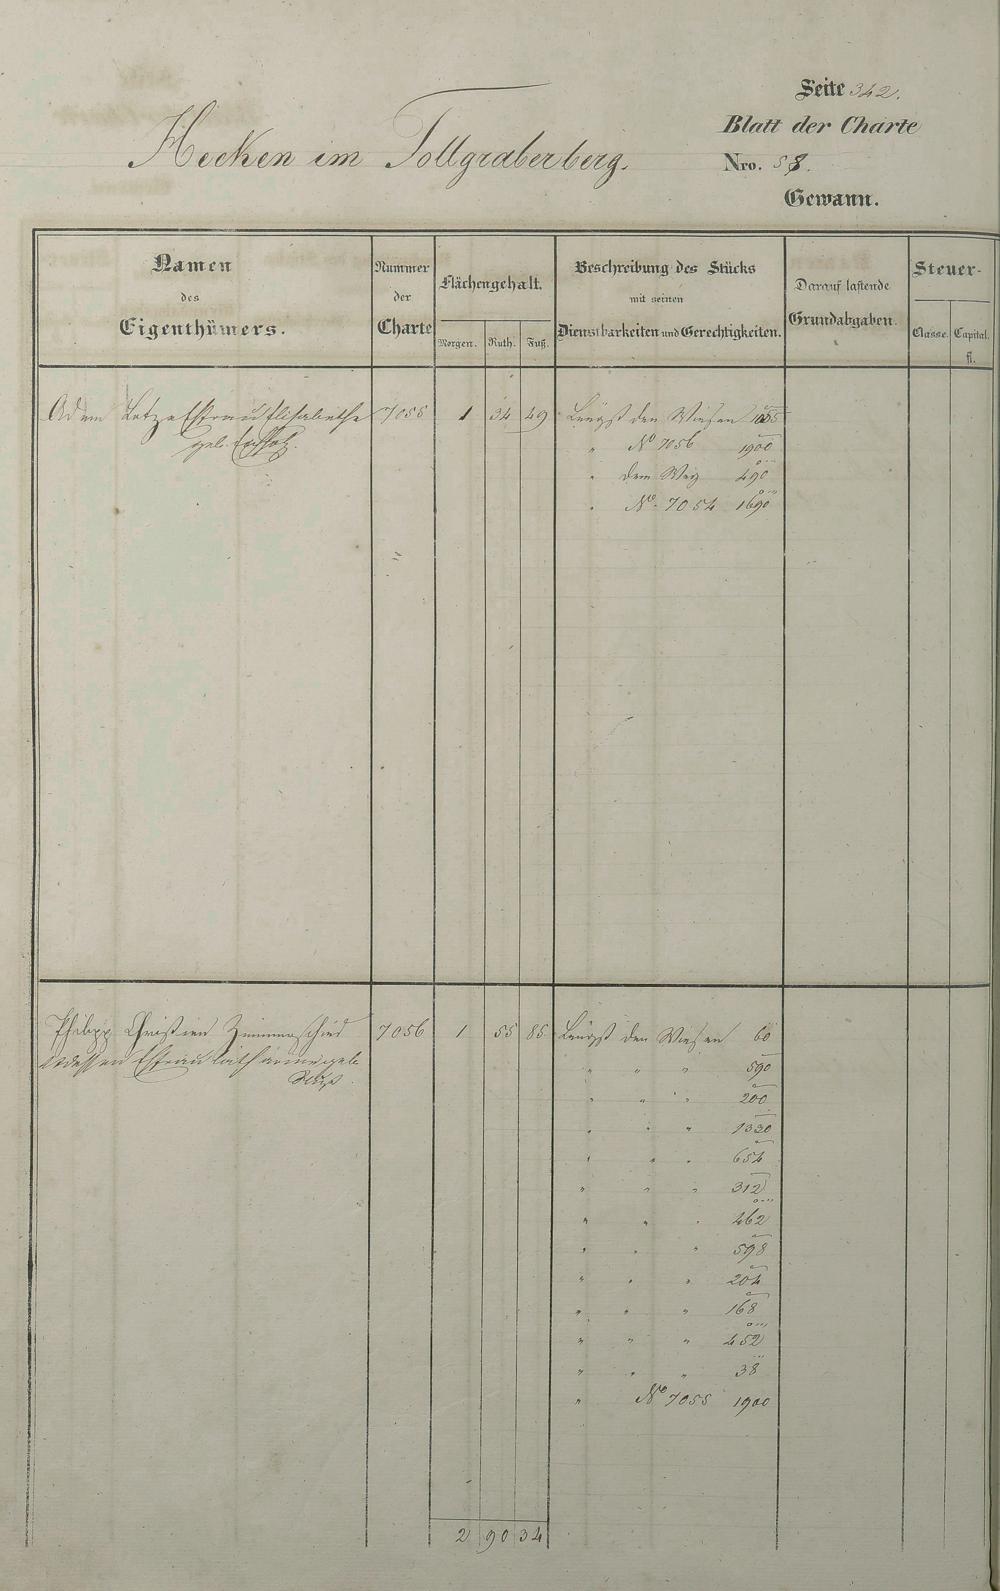 Seite 342.
Blatt der Charte
Hecken im Tollgraberberg.
Nro. 58.
Gewann.
Namen
des
Eigenthümers.
Nummer
der
Charte
Flächengehalt.
Morgen. Ruth. Fuß.
Beschreibung des Stücks
mit seinen
Dienstbarkeiten und Gerechtigkeiten.
Darauf lastende
Grundabgaben.
Steuer-
Classe. Capital.
fl.
Adam Ehefrau Elisabetha 7055 1 34 49 Längst den Wiesen
geb.
" No 7056 1900
" dem Weg 490
" No. 7054 1690
Philipp Christian Zimmerschied 7056 1 55 85 Längst den Wiesen 60
dessen Ehefrau Catharine geb.
" " " 590
" " " 200
" " " 1330
" " " 654
" " " 312
" " " 462
" " " 598
" " " 204
" " " 168
" " " 452
" " " 38
" No 7055 1900
2 90 34